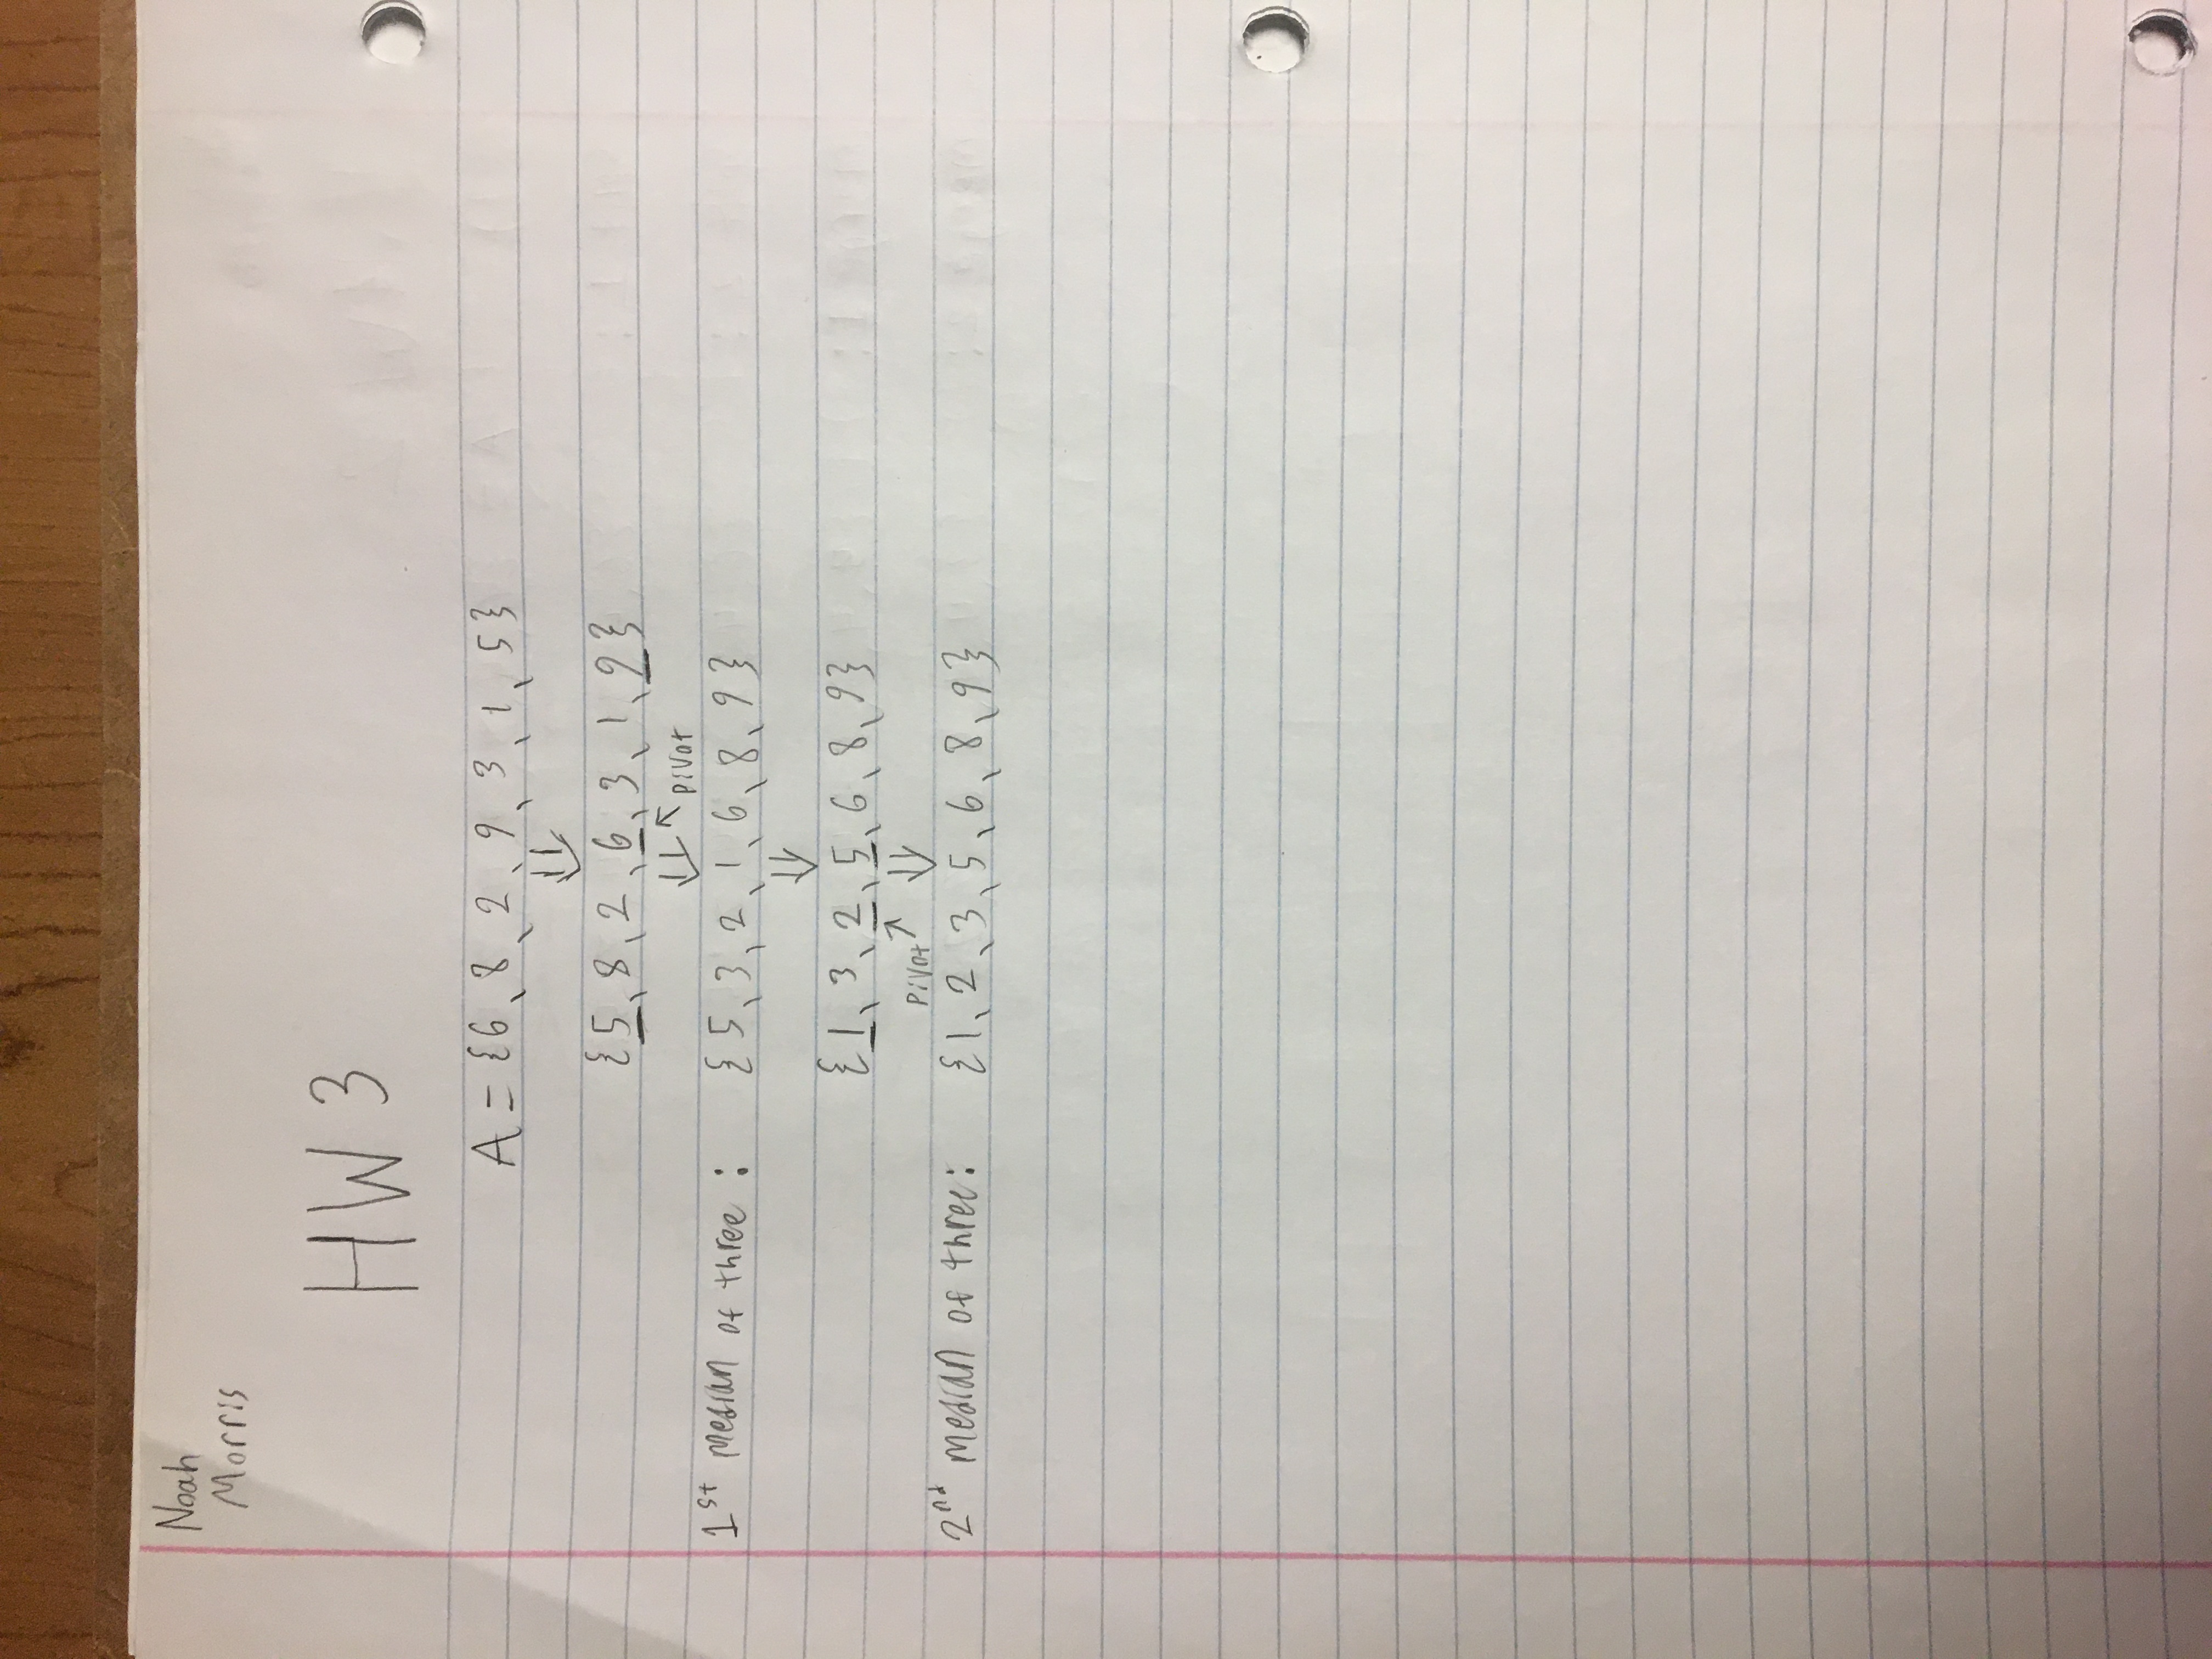 Noah
Morris
HW 3
A = {6, 8, 2, 9, 3, 1, 5}
{5, 8, 2, 6, 3, 1, 9}
pivot
1st median of three: {5, 3, 2, 1, 6, 8, 9}
{1, 3, 2, 5, 6, 8, 9}
pivot
2nd median of three: {1, 2, 3, 5, 6, 8, 9}